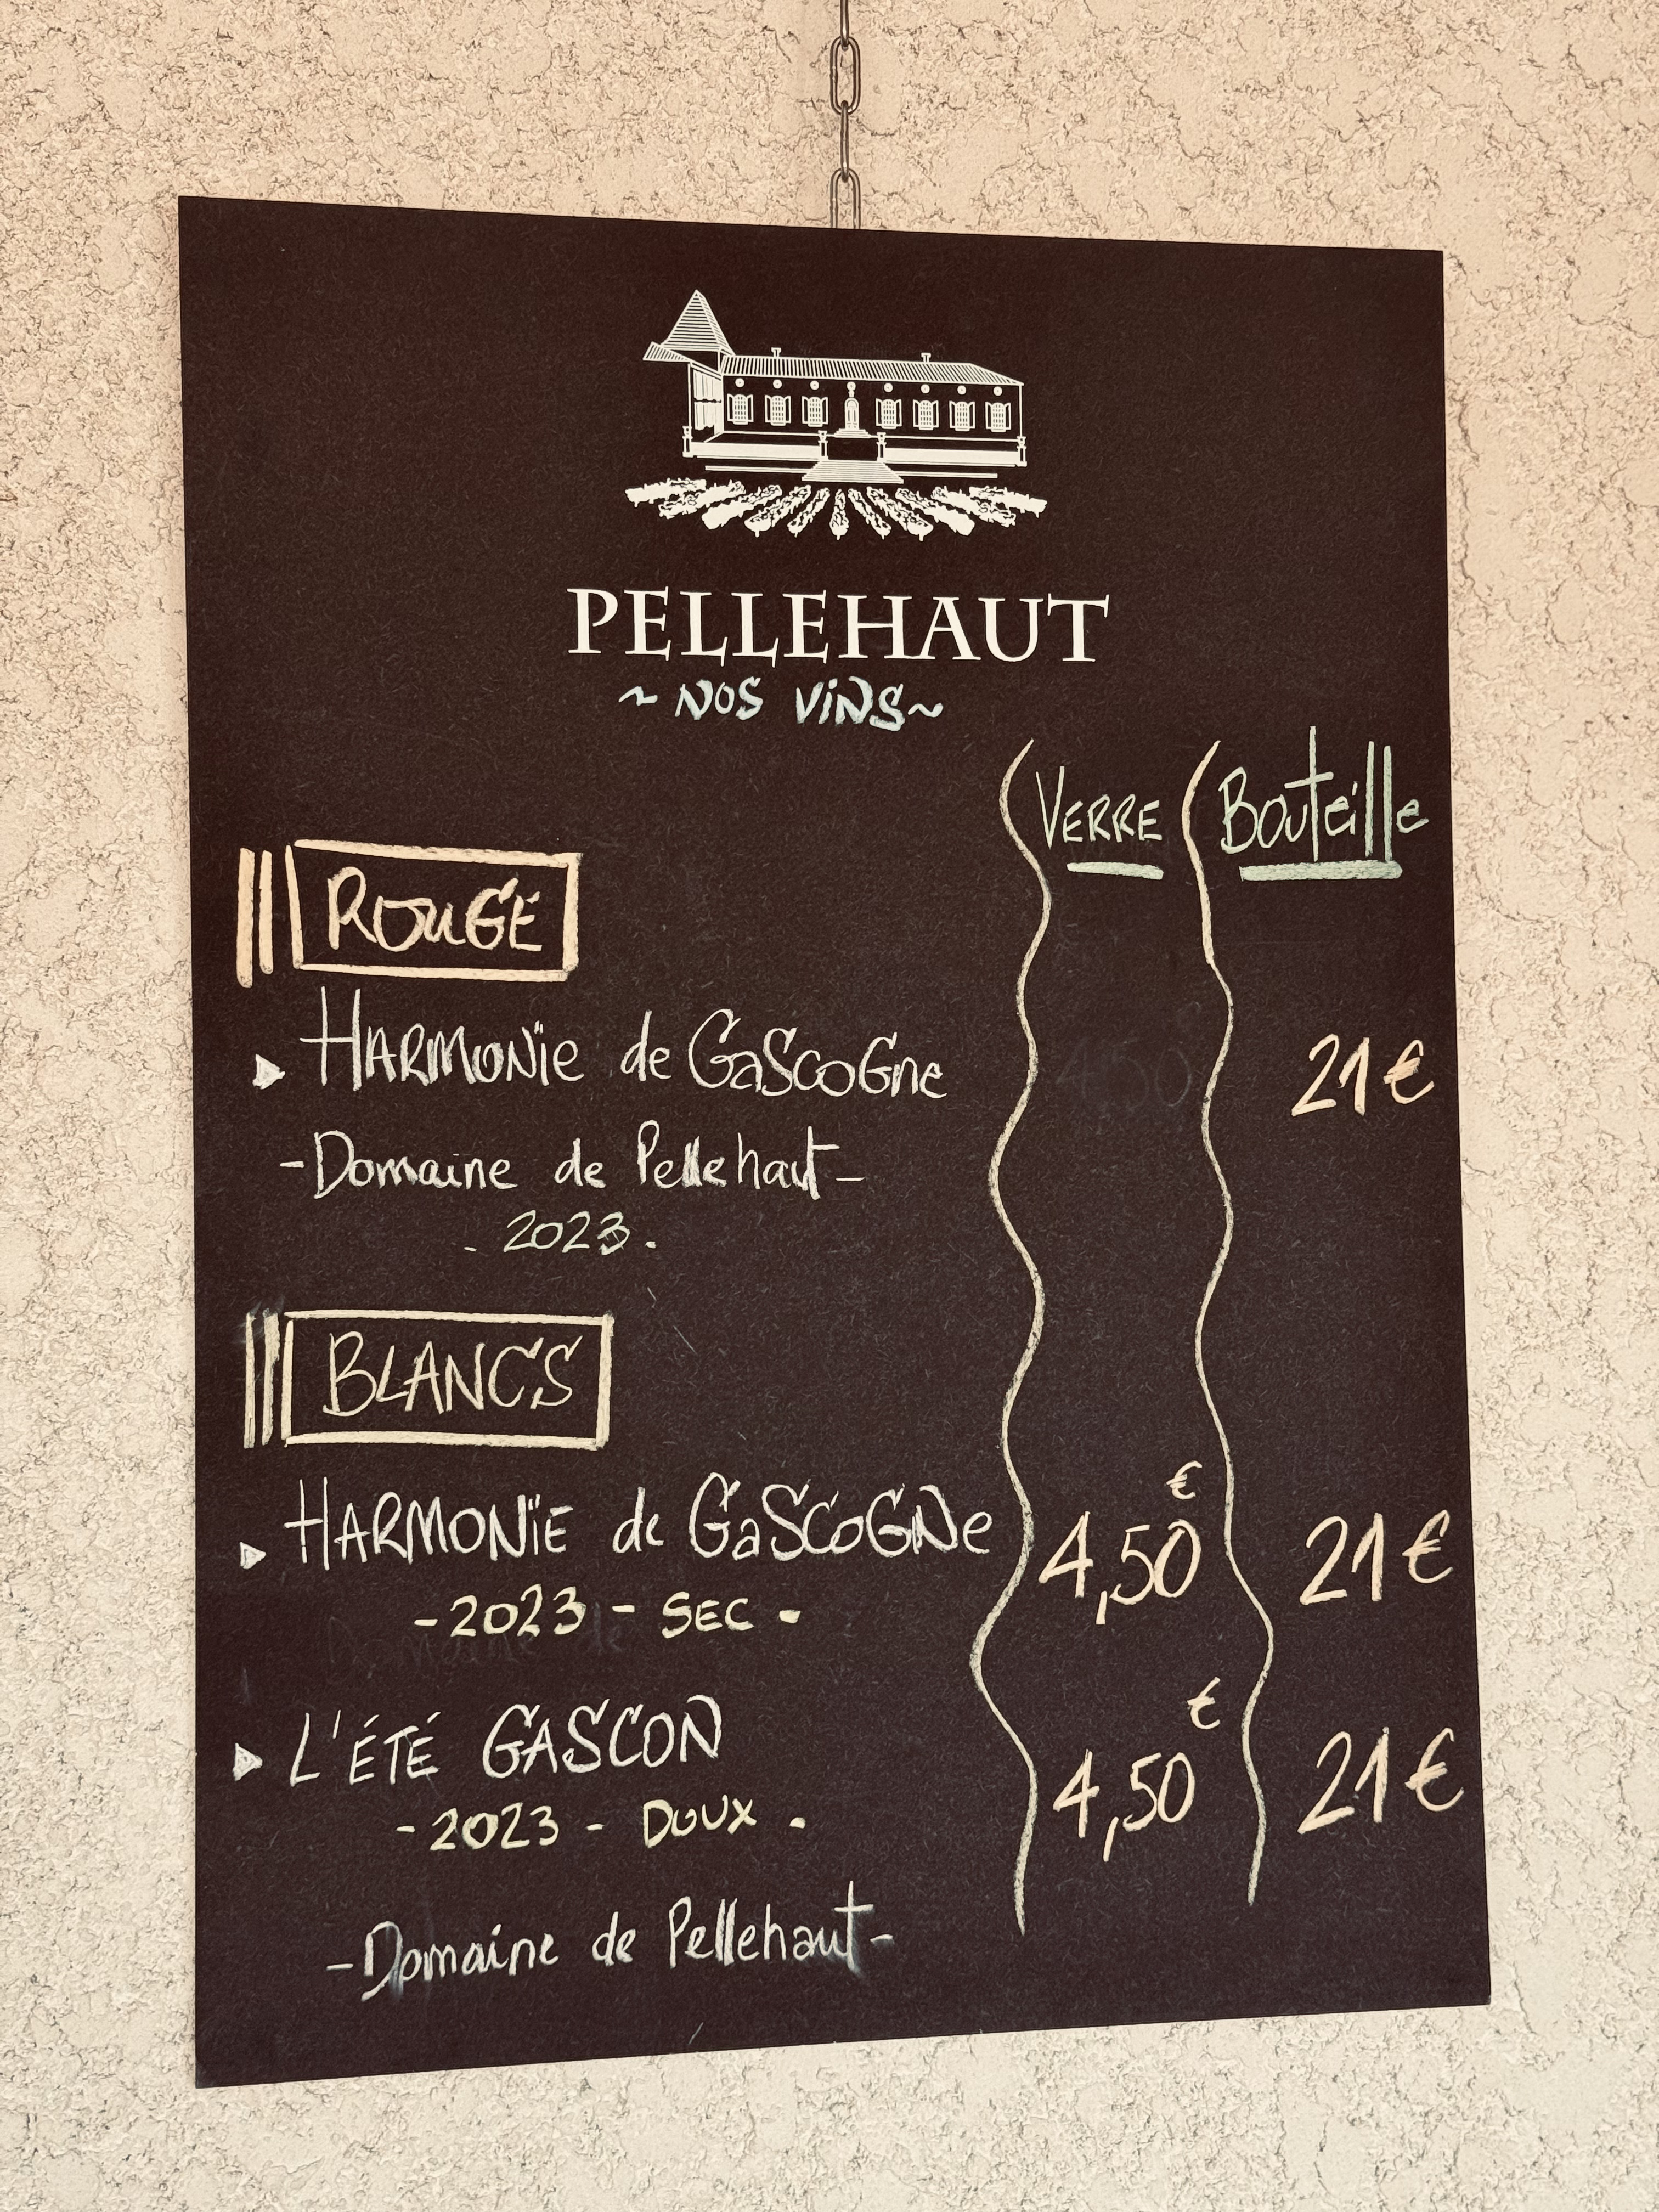 PELLEHAUT
~ NOS ViNS ~
VERRE Bouteille
ROUGE
HARMONïe de GaScoGne 21 €
- Domaine de Pellehaut -
. 2023 .
BLANCS
HARMONïE de GaSCoGNe 4,50 € 21 €
- 2023 - SEC -
L'ÉTÉ GASCON 4,50 € 21 €
- 2023 - DOUX -
- Domaine de Pellehaut -